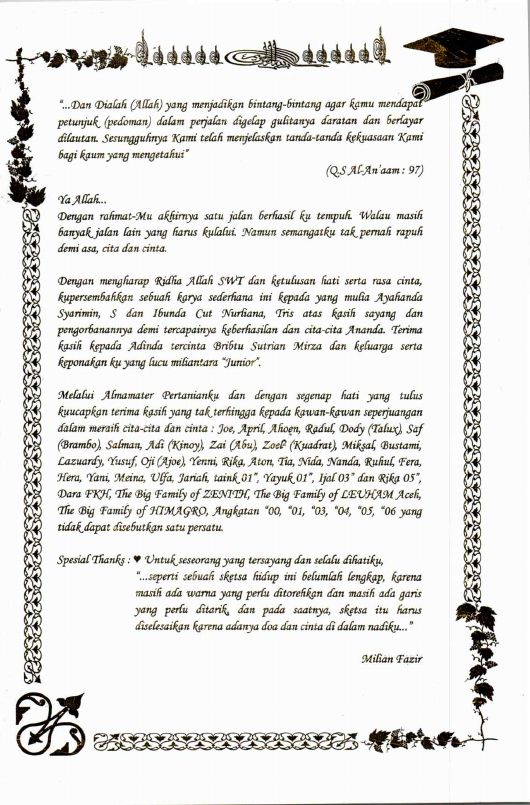 "...Dan Dialah (Allah) yang menjadikan bintang-bintang agar kamu mendapat
petunjuk (pedoman) dalam perjalan digelap gulitanya daratan dan berlayar
dilautan. Sesungguhnya Kami telah menjelaskan tanda-tanda kekuasaan Kami
bagi kaum yang mengetahui"
(Q.S Al-An'aam : 97)
Ya Allah...
Dengan rahmat-Mu akhirnya satu jalan berhasil ku tempuh. Walau masih
banyak jalan lain yang harus kulalui. Namun semangatku tak pernah rapuh
demi asa, cita dan cinta.
Dengan mengharap Ridha Allah SWT dan ketulusan hati serta rasa cinta,
kupersembahkan sebuah karya sederhana ini kepada yang mulia Ayahanda
Syarimin, S dan Ibunda Cut Nurhana, Tris atas kasih sayang dan
pengorbanannya demi tercapainya keberhasilan dan cita-cita Ananda. Terima
kasih kepada Adinda tercinta Bribtu Sutrian Mirza dan keluarga serta
keponakan ku yang lucu miliantara "Junior".
Melalui Almamater Pertanianku dan dengan segenap hati yang tulus
kuucapkan terima kasih yang tak terhingga kepada kawan-kawan seperjuangan
dalam meraih cita-cita dan cinta : Joe, April, Ahoen, Radul, Dody (Talux), Saf
(Brambo), Salman, Adi (Kinoy), Zai (Abu), Zoel² (Kuadrat), Miksal, Bustami,
Lazuardy, Yusuf, Oji (Ajoe), Yenni, Rika, Aton, Tia, Nida, Nanda, Ruhul, Fera,
Hera, Yani, Meina, Ulfa, Jariah, taink 01", Yayuk 01", Ijal 03" dan Rika 05",
Dara FKH, The Big Family of ZENITH, The Big Family of LEUHAM Aceh,
The Big Family of HIMAGRO, Angkatan "00, "01, "03, "04, "05, "06 yang
tidak dapat disebutkan satu persatu.
Spesial Thanks : ♥ Untuk seseorang yang tersayang dan selalu dihatiku,
"...seperti sebuah sketsa hidup ini belumlah lengkap, karena
masih ada warna yang perlu ditorehkan dan masih ada garis
yang perlu ditarik, dan pada saatnya, sketsa itu harus
diselesaikan karena adanya doa dan cinta di dalam nadiku..."
Milian Fazir